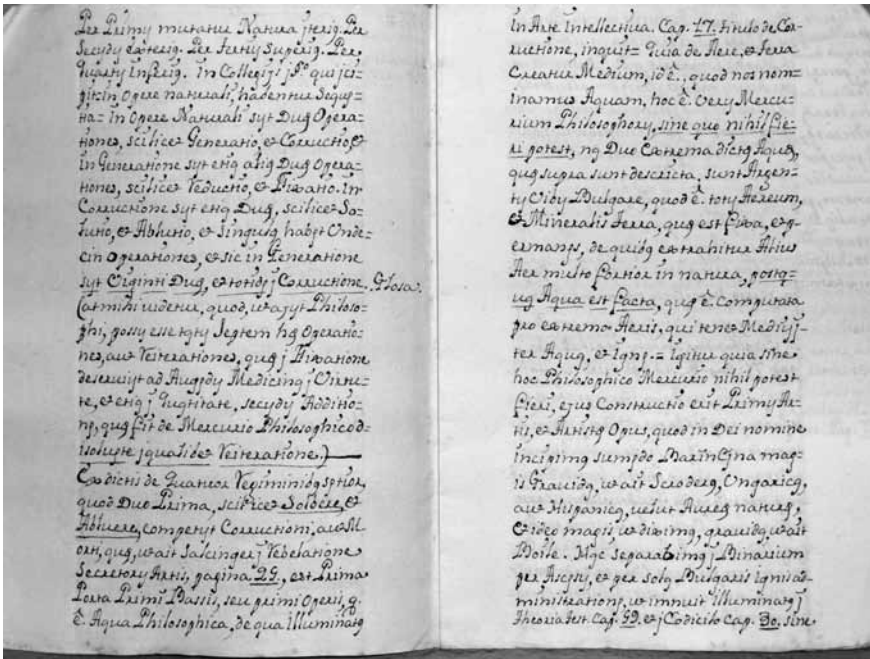 Per Primy mutatur Natura jterig. Per
Secudy exterig. Per Tertiy Superig. Per
Quarty Inferig. In Collegijs
in Opere naturali, habentur Sequy=
ta= in Opere Naturali syt Dug Opera=
tiones, scilicet Generatio, et Corructio, et
in Generatione syt etig alig Dug Opera=
tiones, scilicet Reductio, et Fixatio. In
Corructione syt etig Dug, scilicet So=
lutio, et Ablutio, et Singulg habyt Unde=
cin operationes, et sic in Generatione
syt Viginti Dug, et totidj j Corructione. Glosa.
(at mihi videtur, quod, ut ayt Philoso=
phi, possy esse tgty Septem hg Operatio=
nes, aut Reiterationes, qug j Fixatione
deserviyt ad Augydy Medicing j Virtu=
te, et etig j Qugtitate, secudy Additio=
ng, qug fit de Mercurio Philosophico d=
isolvyte j qualibet Reiteratione.)
Ex dictis de Quatuor Regiminibg
quod Duo Prima, scilicet Solvere, et
Abluere, competyt Corructioni, aut M=
orti, qug, ut ait j Rebelatione
Secretory Artis, pagina 29., est Prima
Porta Primi Bassis, seu primi Operis, q.
ê. Aqua Philosophica, de qua illuminatg
in Arte Intellectiva. Cap. 17. titulo de Cor=
ructione, inquit= Quia de Aere, et terra
Creatur Medium, id ê., quod nos nom=
inamus Aquam, hoc ê. Very Mercu=
rium Philosophory, sine quo nihil fie=
ri potest, ng Duo Extrema dictg Aqug,
qug supra sunt descricta, sunt Argen=
ty Viby Bulgare, quod ê. toty Aereum,
et Mineralis Terra, qug est fixa, et p=
ermangs, de quibg extrahitur Alius
Aer multo fortior in natura, postq=
ug Aqua est facta, qug ê. Computata
pro extremo Aeris, qui tenet Mediyj=
ter Aqug, et Igng.= Igitur quia sine
hoc Philosophico Mercurio nihil potest
fieri, ejus Constructio erit Primy Ar=
tis, et Artistg Opus, quod in Dei nomine
incipimg sumjdo
is Gravidg, ut ait Scroderg, Ungaricg,
aut Hispanicg, velut Aureg naturg,
et ideo magis, ut diximg, gravidg, ut ait
Boile. Mgc Separabimg j Binarium
per Ascysy, et per solg Bulgaris ignis ad=
ministrationg, ut innuit illuminatg j
Theoria test. Cap. 99. et j Codicilo Cap. 30. sine